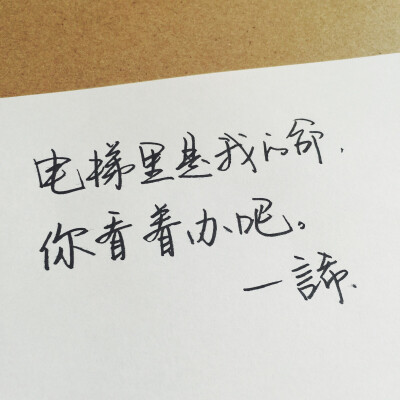 电梯里是我的命,
你看着办吧。
一諦.